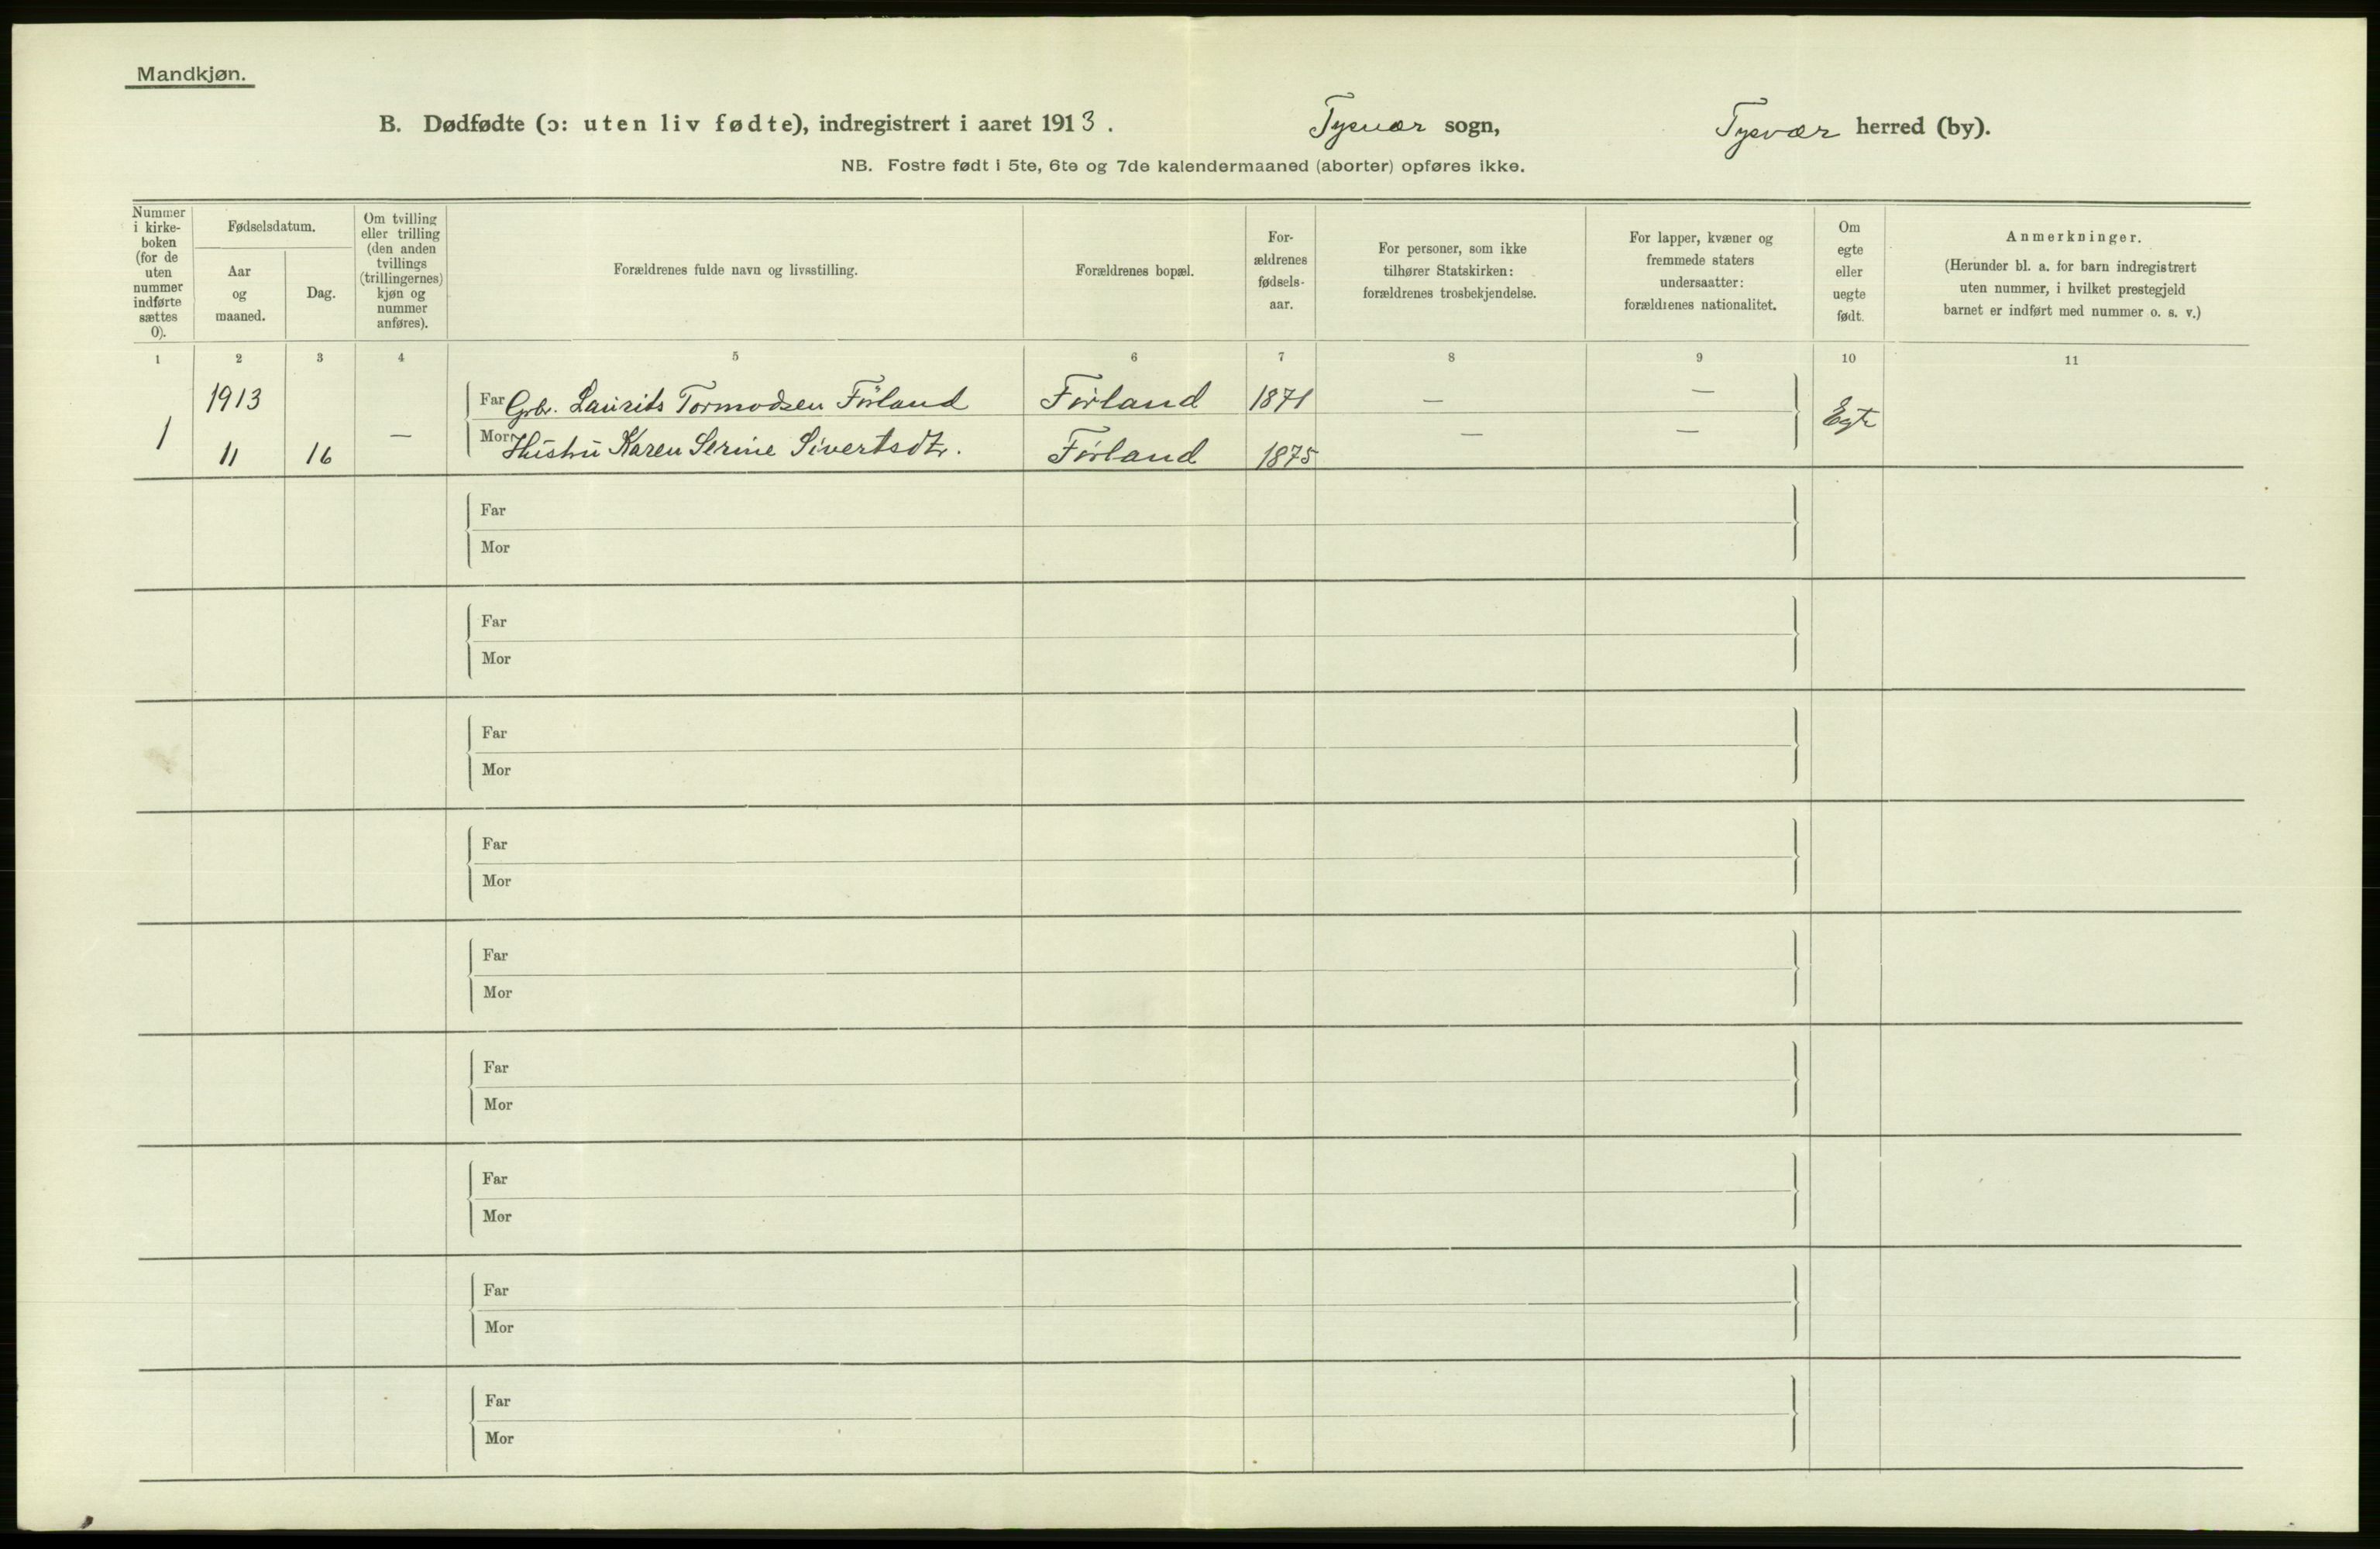 Mandkjøn.
B. Dødfødte (ɔ: uten liv fødte), indregistrert i aaret 1913. Tysvær sogn, Tysvær herred (by).
NB. Fostre født i 5te, 6te og 7de kalendermaaned (aborter) opføres ikke.
Nummer
i kirke-
boken
(for de
uten
nummer
indførte
sættes
0).
Fødselsdatum.
Aar
og
maaned.
Dag.
Om tvilling
eller trilling
(den anden
tvillings
(trillingernes)
kjøn og
nummer
anføres).
Forældrenes fulde navn og livsstilling.
Forældrenes bopæl.
For-
ældrenes
fødsels-
aar.
For personer, som ikke
tilhører Statskirken:
forældrenes trosbekjendelse.
For lapper, kvæner og
fremmede staters
undersaatter:
forældrenes nationalitet.
Om
egte
eller
uegte
født.
Anmerkninger.
(Herunder bl. a. for barn indregistrert
uten nummer, i hvilket prestegjeld
barnet er indført med nummer o. s. v.)
1 2 3 4 5 6 7 8 9 10 11
1913 Far Gbr. Laurits Tormodsen Förland Förland 1871 — —
1 — Egte
11 16 Mor Hustru Karen Serine Sivertsdtr. Förland 1875 — —
Far
Mor
Far
Mor
Far
Mor
Far
Mor
Far
Mor
Far
Mor
Far
Mor
Far
Mor
Far
Mor